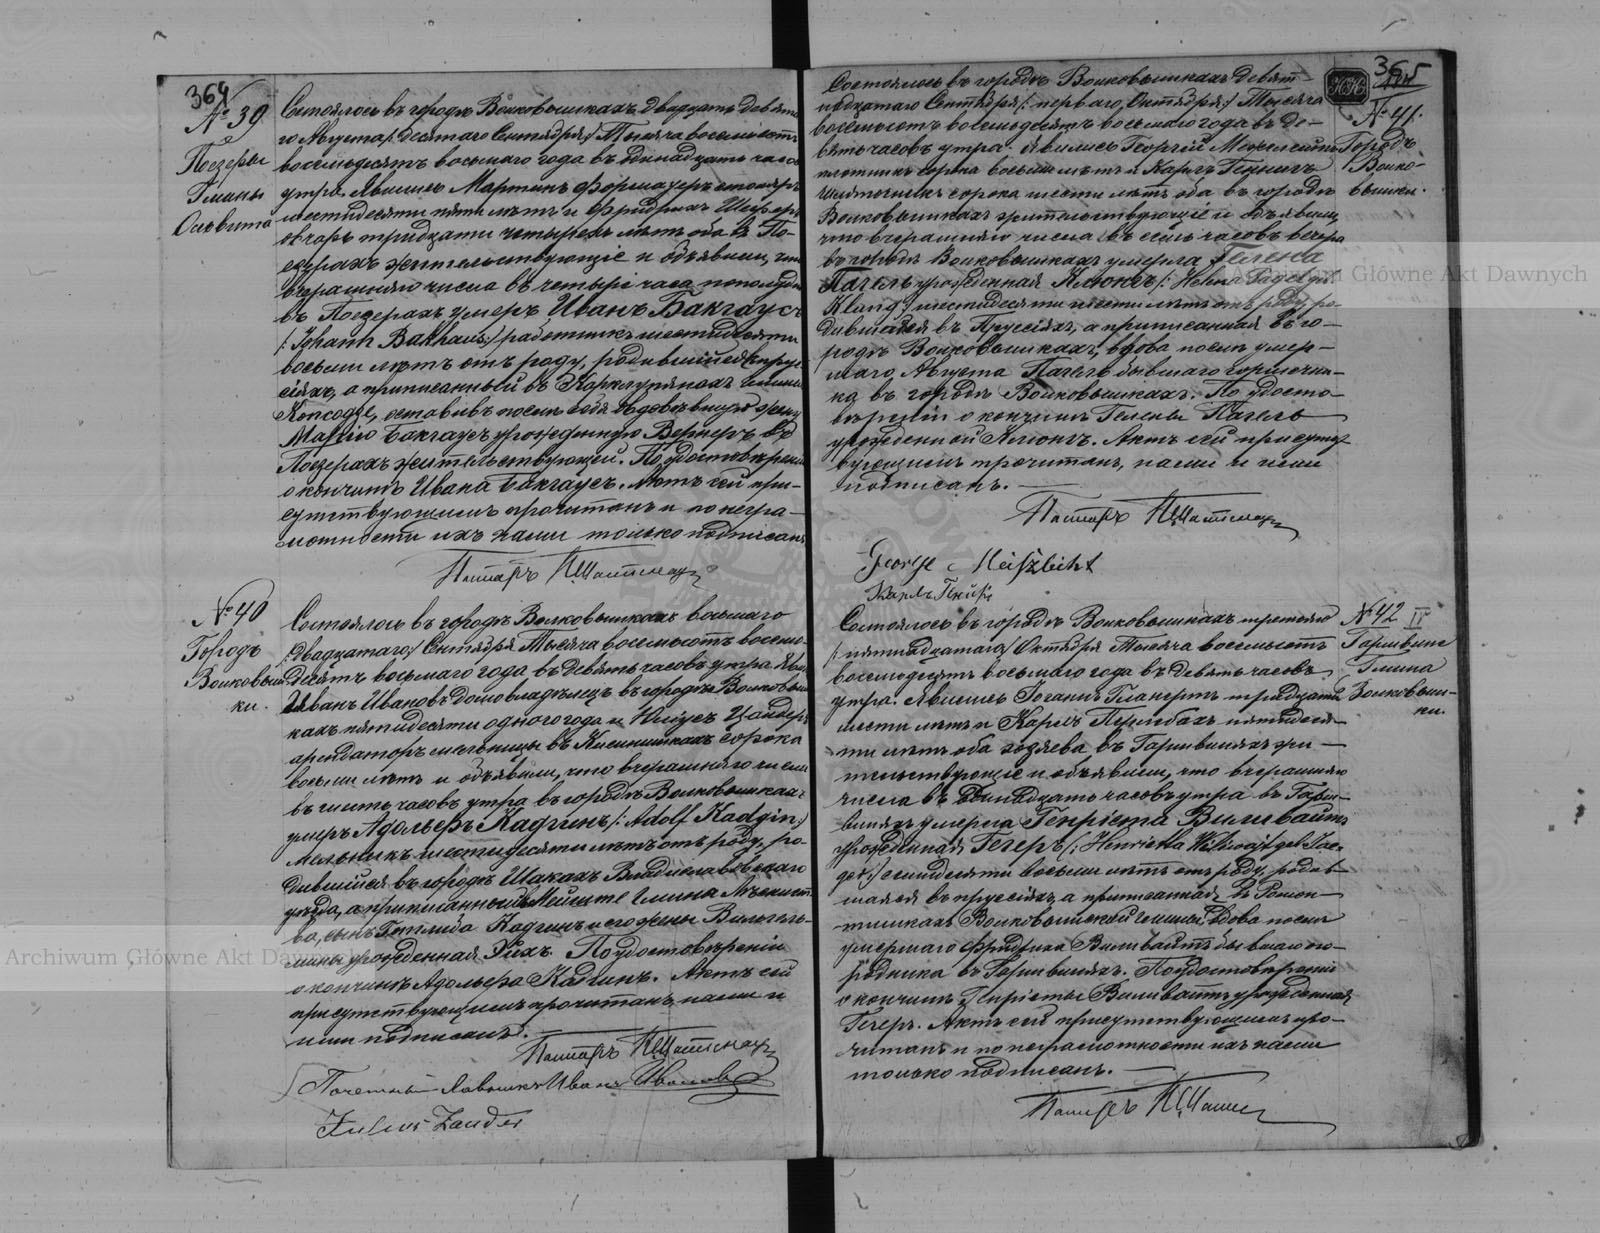 364
№ 39
Поезеры
Гмины
Ольвита
Состоялось въ городѣ Волковышкахъ двадцать девята-
го Августа /: десятаго Сентября :/ Тысяча восемьсотъ
восемьдесятъ восьмаго года въ одинадцать часовъ
утра. Явились Мартинъ столяръ
шестидесяти пяти лѣтъ и Фридрихъ
овчаръ тридцати четырехъ лѣтъ оба въ По-
езерахъ жительствующіе и объявили, что
вчерашняго числа въ четыре часа пополудни
въ Поезерахъ умеръ Иванъ Бакгаусъ
/: Johann Bakhaus :/ работникъ шестидесяти
восьми лѣтъ отъ роду, родившійся въ Прус-
сіяхъ, а приписанный въ гмины
оставивъ послѣ себя вдовствующую жену
Бакгаусъ урожденную Вернеръ въ
Поезерахъ жительствующей. По удостовѣреніи
о кончинѣ Ивана Бакгаусъ. Актъ сей при-
сутствующимъ прочитанъ и по негра-
мотности ихъ нами только подписанъ
Пасторъ
№ 40
Городъ
Волковыш-
ки.
Состоялось въ городѣ Волковышкахъ восьмаго
/: двадцатаго :/ Сентября Тысяча восемьсотъ восемь-
десятъ восьмаго года въ девять часовъ утра. Яви-
Иванъ Ивановъ домовладѣлецъ въ городѣ Волковыш-
кахъ пятидесяти одного года и Юліусъ Цандеръ
арендаторъ мельницы въ сорока
восьми лѣтъ и объявили, что вчерашняго числа
въ шесть часовъ утра въ городѣ Волковышкахъ
умеръ Адольфъ Кадгинъ /: Adolf Kadgin :/
мельникъ шестидесяти лѣтъ отъ роду, ро-
дившійся въ городѣ Шакахъ Владиславовскаго
уѣзда, а приписанный гмина
сынъ Готлиба Кадгинъ и его жены Вильгель-
мины урожденная По удостовѣреніи
о кончинѣ Адольфа Кадгинъ. Актъ сей
присутствующимъ прочитанъ, нами и
ими подписанъ.
Пасторъ
Почетный Иванъ Ивановъ
Julius Zander
365
№ 41.
Городъ
Волко-
вышки.
Состоялось въ городѣ Волковышкахъ девят-
надцатаго Сентября /: перваго Октября :/ Тысяча
восемьсотъ восемьдесятъ восьмаго года въ де-
вять часовъ утра. Явились Георгій
плотникъ сорока восьми лѣтъ и Карлъ
сорока шести лѣтъ оба въ городѣ
Волковышкахъ жительствующіе и объявили,
что вчерашняго числа въ семь часовъ вечера
въ городѣ Волковышкахъ умерла Гелена
Пагель урожденная Клюнгъ /: Helena
шестидесяти шести лѣтъ отъ роду, ро-
дившаяся въ Пруссіяхъ, а приписанная въ го-
родѣ Волковышкахъ, вдова послѣ умер-
шаго Августа Пагель бывшаго
въ городѣ Волковышкахъ. По удосто-
вѣреніи о кончинѣ Гелены Пагель
урожденной Клюнгъ. Актъ сей присутст-
вующимъ прочитанъ, нами и ими
подписанъ.
Пасторъ
George Meiszlicht
Карлъ
№ 42 II
Гмина
Волковыш-
ки.
Состоялось въ городѣ Волковышкахъ третьяго
/: пятнадцатаго :/ Октября Тысяча восемьсотъ
восемьдесятъ восьмаго года въ девять часовъ
утра. Явились Іоганъ тридцати
шести лѣтъ и Карлъ пятидеся-
ти лѣтъ оба хозяева въ жи-
тельствующіе и объявили, что вчерашняго
числа въ одинадцать часовъ утра въ
умерла Генріета Виливайтъ
урожденная Гегеръ /: Henrietta Williwait geb Jae-
ger :/ семидесяти восьми лѣтъ отъ роду, родив-
шаяся въ Пруссіяхъ, а приписанная въ
Волковышской гмины, вдова послѣ
умершаго Фридриха Виливайтъ бывшаго ого-
родника въ По удостовѣреніи
о кончинѣ Генріеты Виливайтъ урожденная
Гегеръ. Актъ сей присутствующимъ про-
читанъ и по неграмотности ихъ нами
только подписанъ.
Пасторъ
Archiwum Główne Akt Dawnych
Archiwum Główne Akt Dawnych